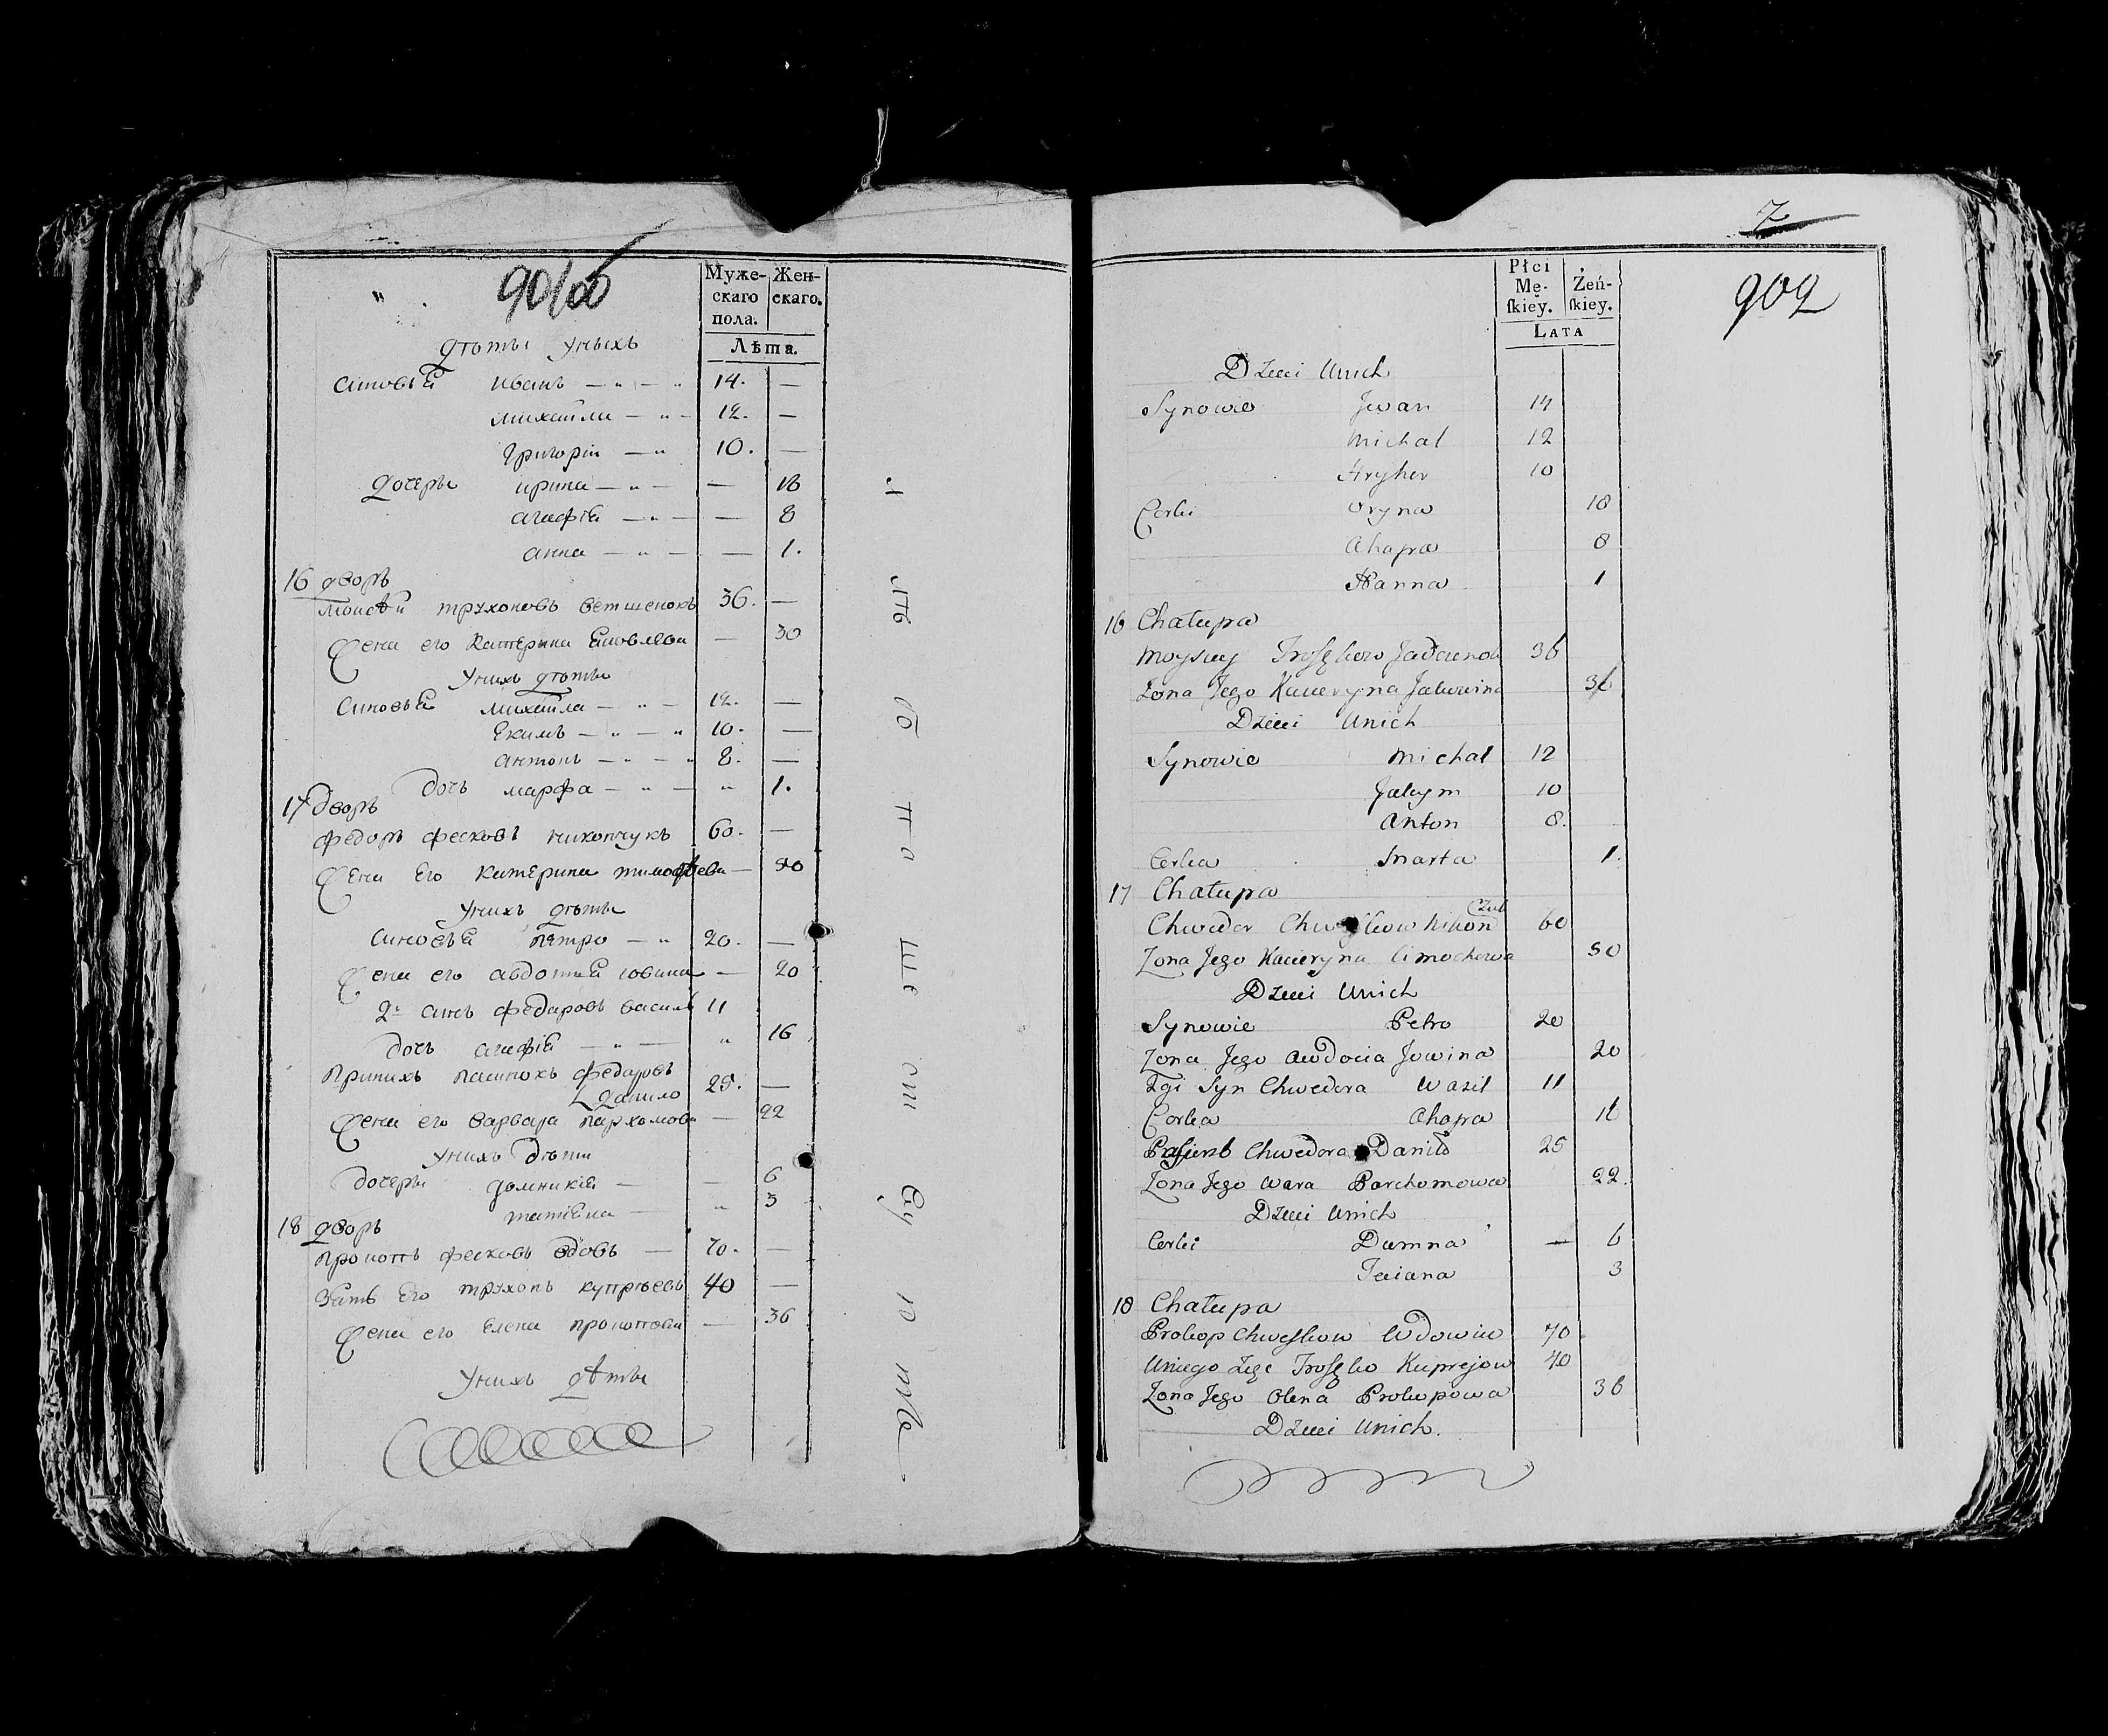 Муже-
скаго
пола.
Жен-
скаго.
Лѣта.
дѣты унихъ
синовья иванъ — „ — „ 14. —
михайли — „ — 12. —
григорій — „ 10. —
дочеры ирина — „ — — 18
агафія — „ — — 8
анна — „ — — 1.
16 дворъ
моисѣй трухоновъ 36. —
жена его катерина — 30
унихъ дѣты
синовья михайла — „ — 12. —
екимъ — „ — „ 10. —
антонъ — „ — „ 8. —
дочь марфа — „ — „ 1.
17 дворъ
федоръ фесковъ никончукъ 60. —
жена его катерина тимофѣева — 50
унихъ дѣты
синовья петро — „ 20. —
жена его авдотия иовина — 20
2й синъ федаровъ василь 11
дочь агафія — „ — „ 16
принихъ пасинокъ федаровъ
данило 25. —
жена его варвара пархомова — 22
унихъ дѣти
дочеры домникия — — 6
татіяна — „ 3
18 дворъ
прокопъ фесковъ вдовъ — 70. —
зать его трухонъ купрѣевъ 40 —
жена его елена прокопова — 36
унихъ дѣты
7
902
Płci
Mę-
ſkiey.
Żeń-
ſkiey.
LATA
Dzieci Unich
Synowie Jwan 14
Michał 12
Hryhor 10
Corki Oryna 18
Ahapa 8
Hanna 1
16 Chałupa
Moysiey 36
Zona Jego Kacieryna
Dzieci Unich
Synowie Michał 12
Jakym 10
Anton 8.
Corka Marta 1.
17 Chałupa
Chwedor Chweſkow Nikon
czuk 60
Zona Jego Kacieryna Cimochowa 50
Dzieci Unich
Synowie Petro 20
Zona Jego Awdocia Jowina 20
2gi Syn Chwedora Wasil 11
Corka Ahapa 16
Paſierb Chwedora Daniło 25
Zona Jego Wara Parchomowa 22.
Dzieci Unich
Corki Damna — 6
Taciana 3
18 Chałupa
Prokop Chweſkow Wdowiec 70
Uniego Zięć Kuprejow 40
Zona Jego Olena Prokopowa 36
Dzieci Unich.